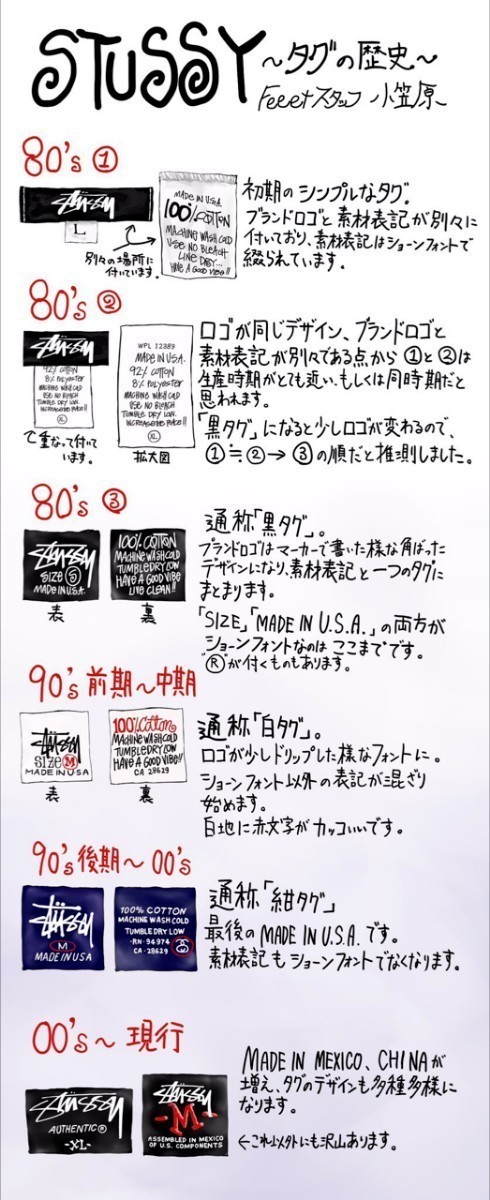 STUSSY ～タグの歴史～
Feeetスタッフ 小笠原
80's ①
STÜSSY
L
別々の場所に
付いています。
MADE IN U.S.A.
100% COTTON
MACHINE WASH COLD
USE NO BLEACH
LINE DRY...
HAVE A GOOD VIBE!!
初期のシンプルなタグ。
ブランドロゴと素材表記が別々に
付いており、素材表記はショーンフォントで
綴られています。
80's ②
STÜSSY
92% COTTON
8% POLYESTER
MACHINE WASH COLD
USE NO BLEACH
TUMBLE DRY LOW.
XL
で重なって付いて
います。
WPL 12389
MADE IN U.S.A.
92% COTTON
8% POLYESTER
MACHINE WASH COLD
USE NO BLEACH
TUMBLE DRY LOW.
XL
拡大図
ロゴが同じデザイン、ブランドロゴと
素材表記が別々である点から①と②は
生産時期がとても近い、もしくは同時期だと
思われます。
「黒タグ」になると少しロゴが変わるので、
①≒②→③の順だと推測しました。
80's ③
STÜSSY
SIZE S
MADE IN U.S.A.
表
100% COTTON
MACHINE WASH COLD
TUMBLE DRY LOW
HAVE A GOOD VIBE
LIVE CLEAN!!
裏
通称「黒タグ」。
ブランドロゴはマーカーで書いた様な角ばった
デザインになり、素材表記と一つのタグに
まとまります。
「SIZE」「MADE IN U.S.A.」の両方が
ショーンフォントなのはここまでです。
"Ⓡ"が付くものもあります。
90's 前期～中期
STÜSSY
SIZE M
MADE IN USA
表
100% Cotton
MACHINE WASH COLD
TUMBLE DRY LOW
HAVE A GOOD VIBE!!
CA 28629
裏
通称「白タグ」。
ロゴが少しドリップした様なフォントに。
ショーンフォント以外の表記が混ざり
始めます。
白地に赤文字がカッコいいです。
90's 後期～00's
STÜSSY
M
MADE IN USA
100% COTTON
MACHINE WASH COLD
TUMBLE DRY LOW
RN 94974
CA 28629
通称「紺タグ」
最後のMADE IN U.S.A.です。
素材表記もショーンフォントでなくなります。
00's～現行
STÜSSY
AUTHENTIC®
-XL-
STÜSSY
-M-
ASSEMBLED IN MEXICO
OF U.S. COMPONENTS
MADE IN MEXICO、CHINAが
増え、タグのデザインも多種多様に
なります。
←これ以外にも沢山あります。